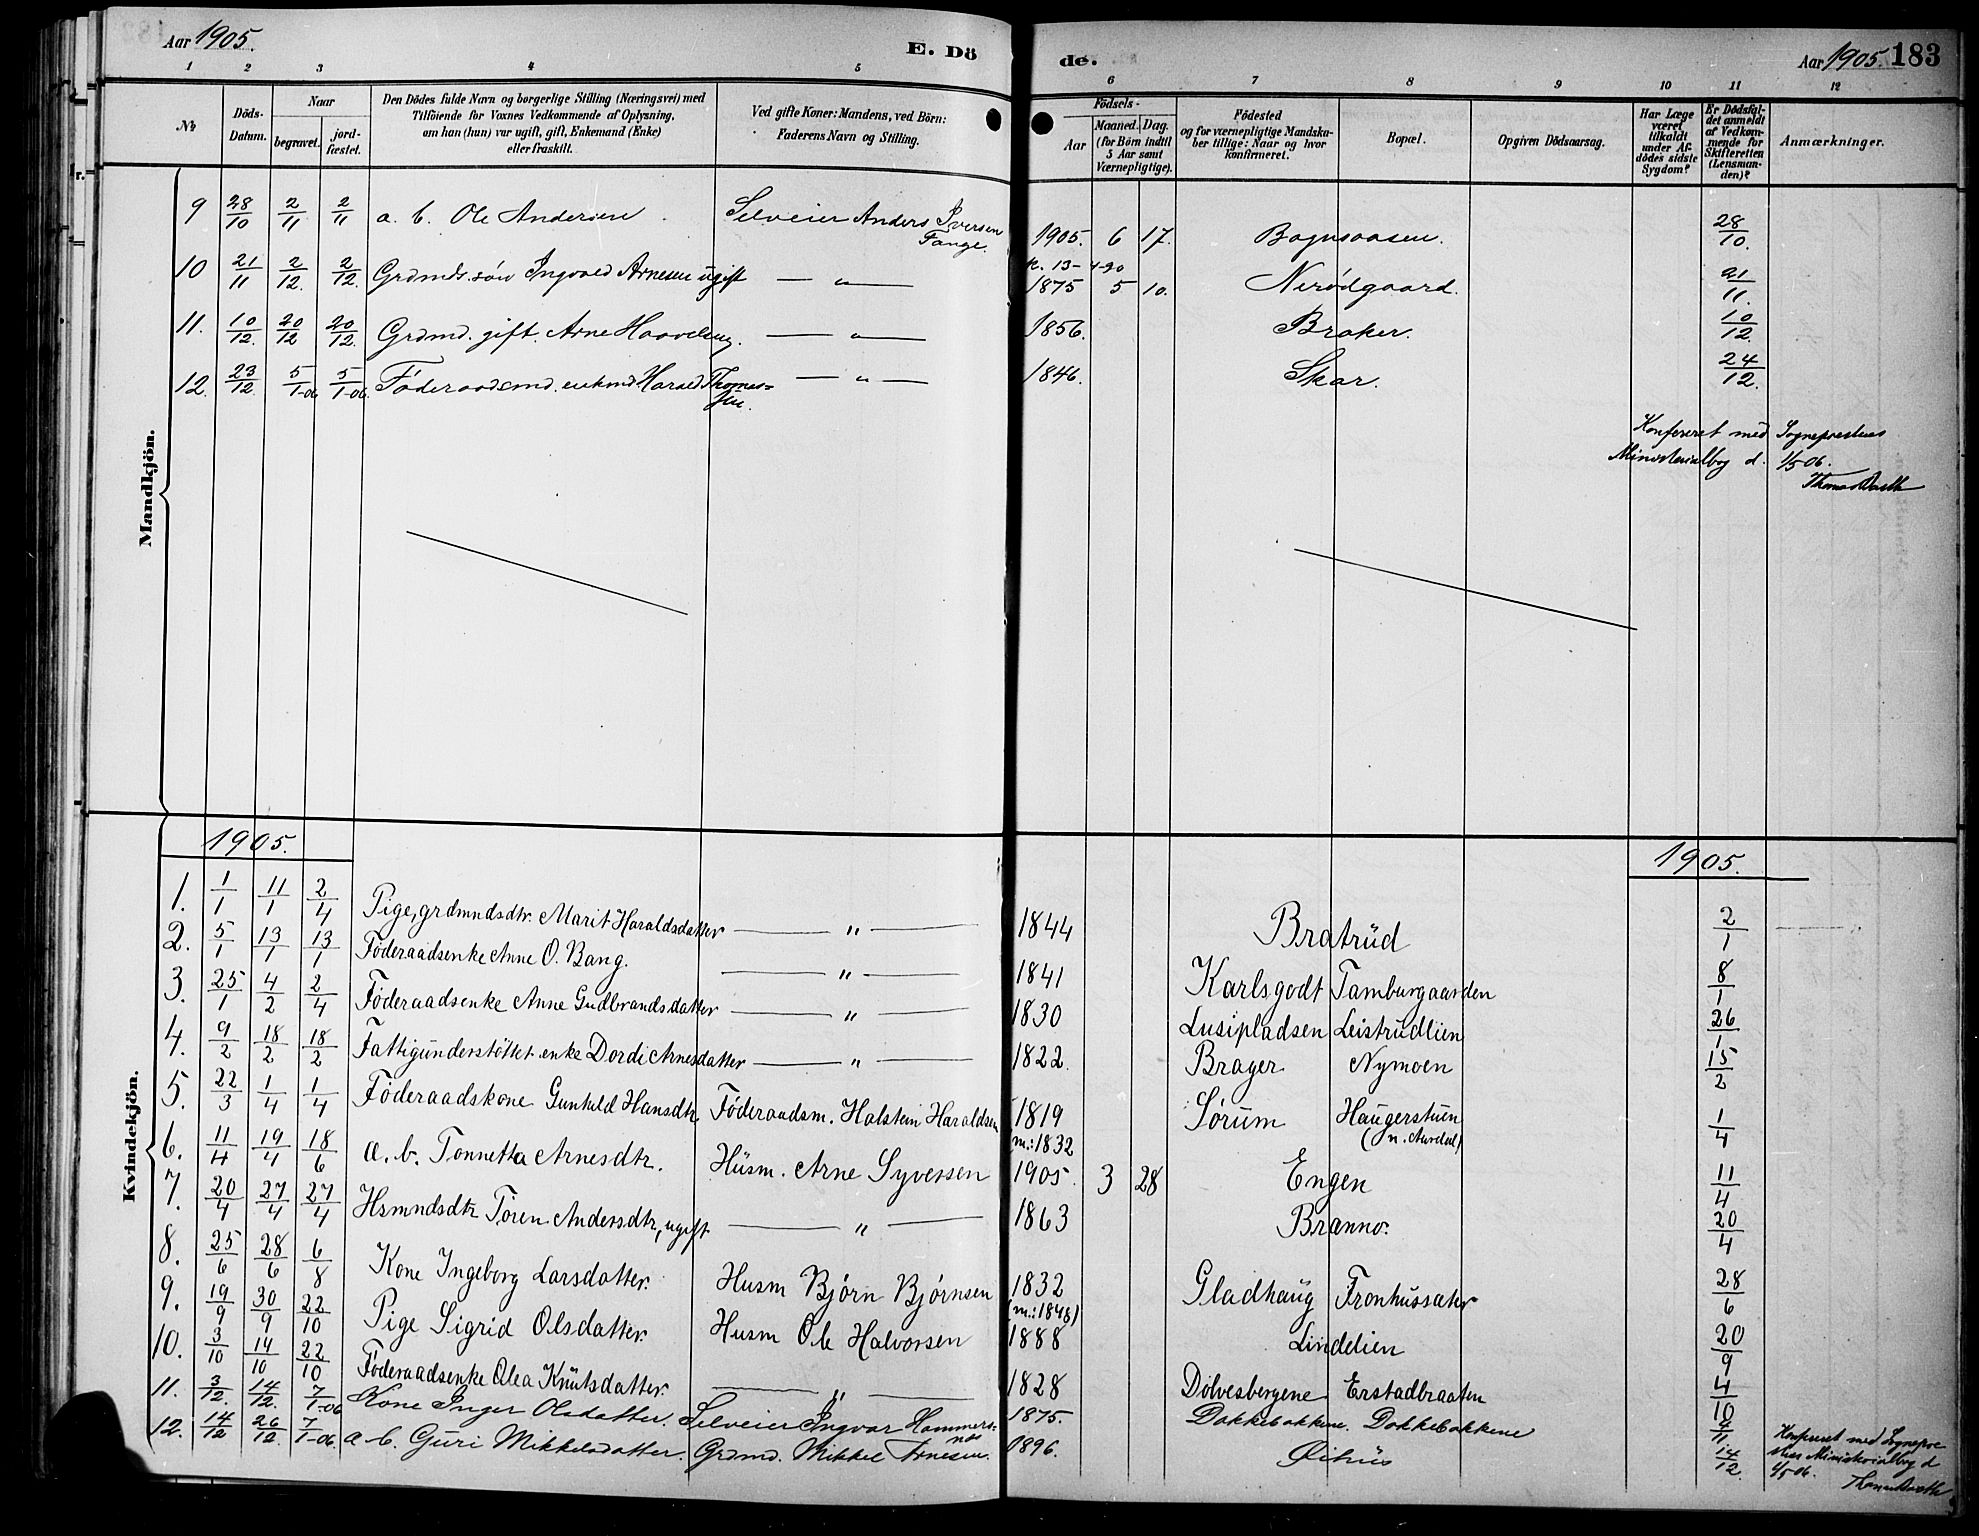 Aar 1905. E. Dö de. Aar 1905. 183
1 2 3 4 5 6 7 8 9 10 11 12
№ Döds-Datum. Naar begravet. jord-fæstet. Den Dödes fulde Navn og borgerlige Stilling (Næringsvei) med Tilföiende for Voxnes Vedkommende af Oplysning, om han (hun) var ugift, gift, Enkemand (Enke) eller fraskilt. Ved gifte Koner: Mandens, ved Börn: Faderens Navn og Stilling. Födsels- Aar Maaned. Dag. (for Börn indtil 5 Aar samt Værnepligtige). Födested og for værnepligtige Mandska-ber tillige: Naar og hvor konfirmeret. Bopæl. Opgiven Dödsaarsag. Har Læge været tilkaldt under Af-dödes sidste Sygdom? Er Dödsfal-det anmeldt af Vedkom-mende for Skifteretten (Lensman-den)? Anmærkninger.
Mandkjön.
9 28/10 2/11 2/11 a. b. Ole Andersen. Selveier Anders Iversen Fange. 1905. 6 17. Bagnsaasen. 28/10.
10 21/11 2/12. 2/12. Grdmds.søn Ingvald Arnesen ugift — " — k. 13-4-90 1875 5 10. Nerødgaard. 21/11.
11. 10/12. 20/12 20/12. Grdmd. gift. Arne Haavelsen. — " — 1856. Braker. 10/12.
12. 23/12. 5/1-06 5/1-06. Föderaadsmd. enkmd Harald Thomes=sen. — " — 1846. Skar. 24/12.
Konfereret med Sogneprestens
Ministerialbog d. 1/5 06.
Thomas Barth
Kvindekjön.
1905. 1905.
1. 1/1 11/1 2/4 Pige, grdmndsdtr. Marit Haraldsdatter — " — 1844 Bratrüd 2/1
2. 5/1 13/1 13/1 Föderaadsenke Anne O. Bang. — " — 1841 Karlsgodt Tamburgaarden 8/1
3. 25/1 4/2 2/4 Föderaadsenke Anne Gudbrandsdatter — " — 1830 Lusipladsen Leistrudlien 26/1
4. 9/2 18/2 18/2 Fattigunderstöttet enke Dordi Arnesdatter — " — 1822. Brager Nymoen 15/2
5. 22/3 1/4 1/4 Föderaadskone Gunhild Hansdtr Föderaadsm. Halstein Haraldsen 1819 (m.: 1832 Sørum Haugerstuen (n. Aurdal) 1/4
6. 11/4 19/4 18/6 a. b. Tonnetta Arnesdtr. Hüsm. Arne Syversen 1905. 3 28 Engen 11/4
7. 20/4 27/4 27/4 Hsmndsdtr Toren Andersdtr, ugift — " — 1863 Branno. 20/4
8. 25/6 28/6 6/8 Kone Ingeborg Larsdatter. Husm Bjørn Bjørnsen 1832 (m.: 1848) Gladhaug Fronhussæter 28/6
9. 19/9 30/9 22/10 Pige Sigrid Olsdatter. Husm Ole Halvorsen 1888 Lindelien 20/9
10. 3/10 14/10 22/10 Föderaadsenke Olea Knütsdatter. — " — 1828 Dölvesbergene Erstadbraaten 4/10
11. 3/12. 14/12. 7/1-06 Kone Inger Olsdatter. Selveier Ingvar Hammers=nes 1875. Dokkebakkene. Dokkebakkene 4/11
12. 14/12 26/12. 7/1-06. a. b. Guri Mikkelsdatter. Grdmd. Mikkel Arnesen. 1896. Øihus 14/12.
Konfereret med Sognepre
stens Ministerialbog d
1/5 06.
Thomas Barth